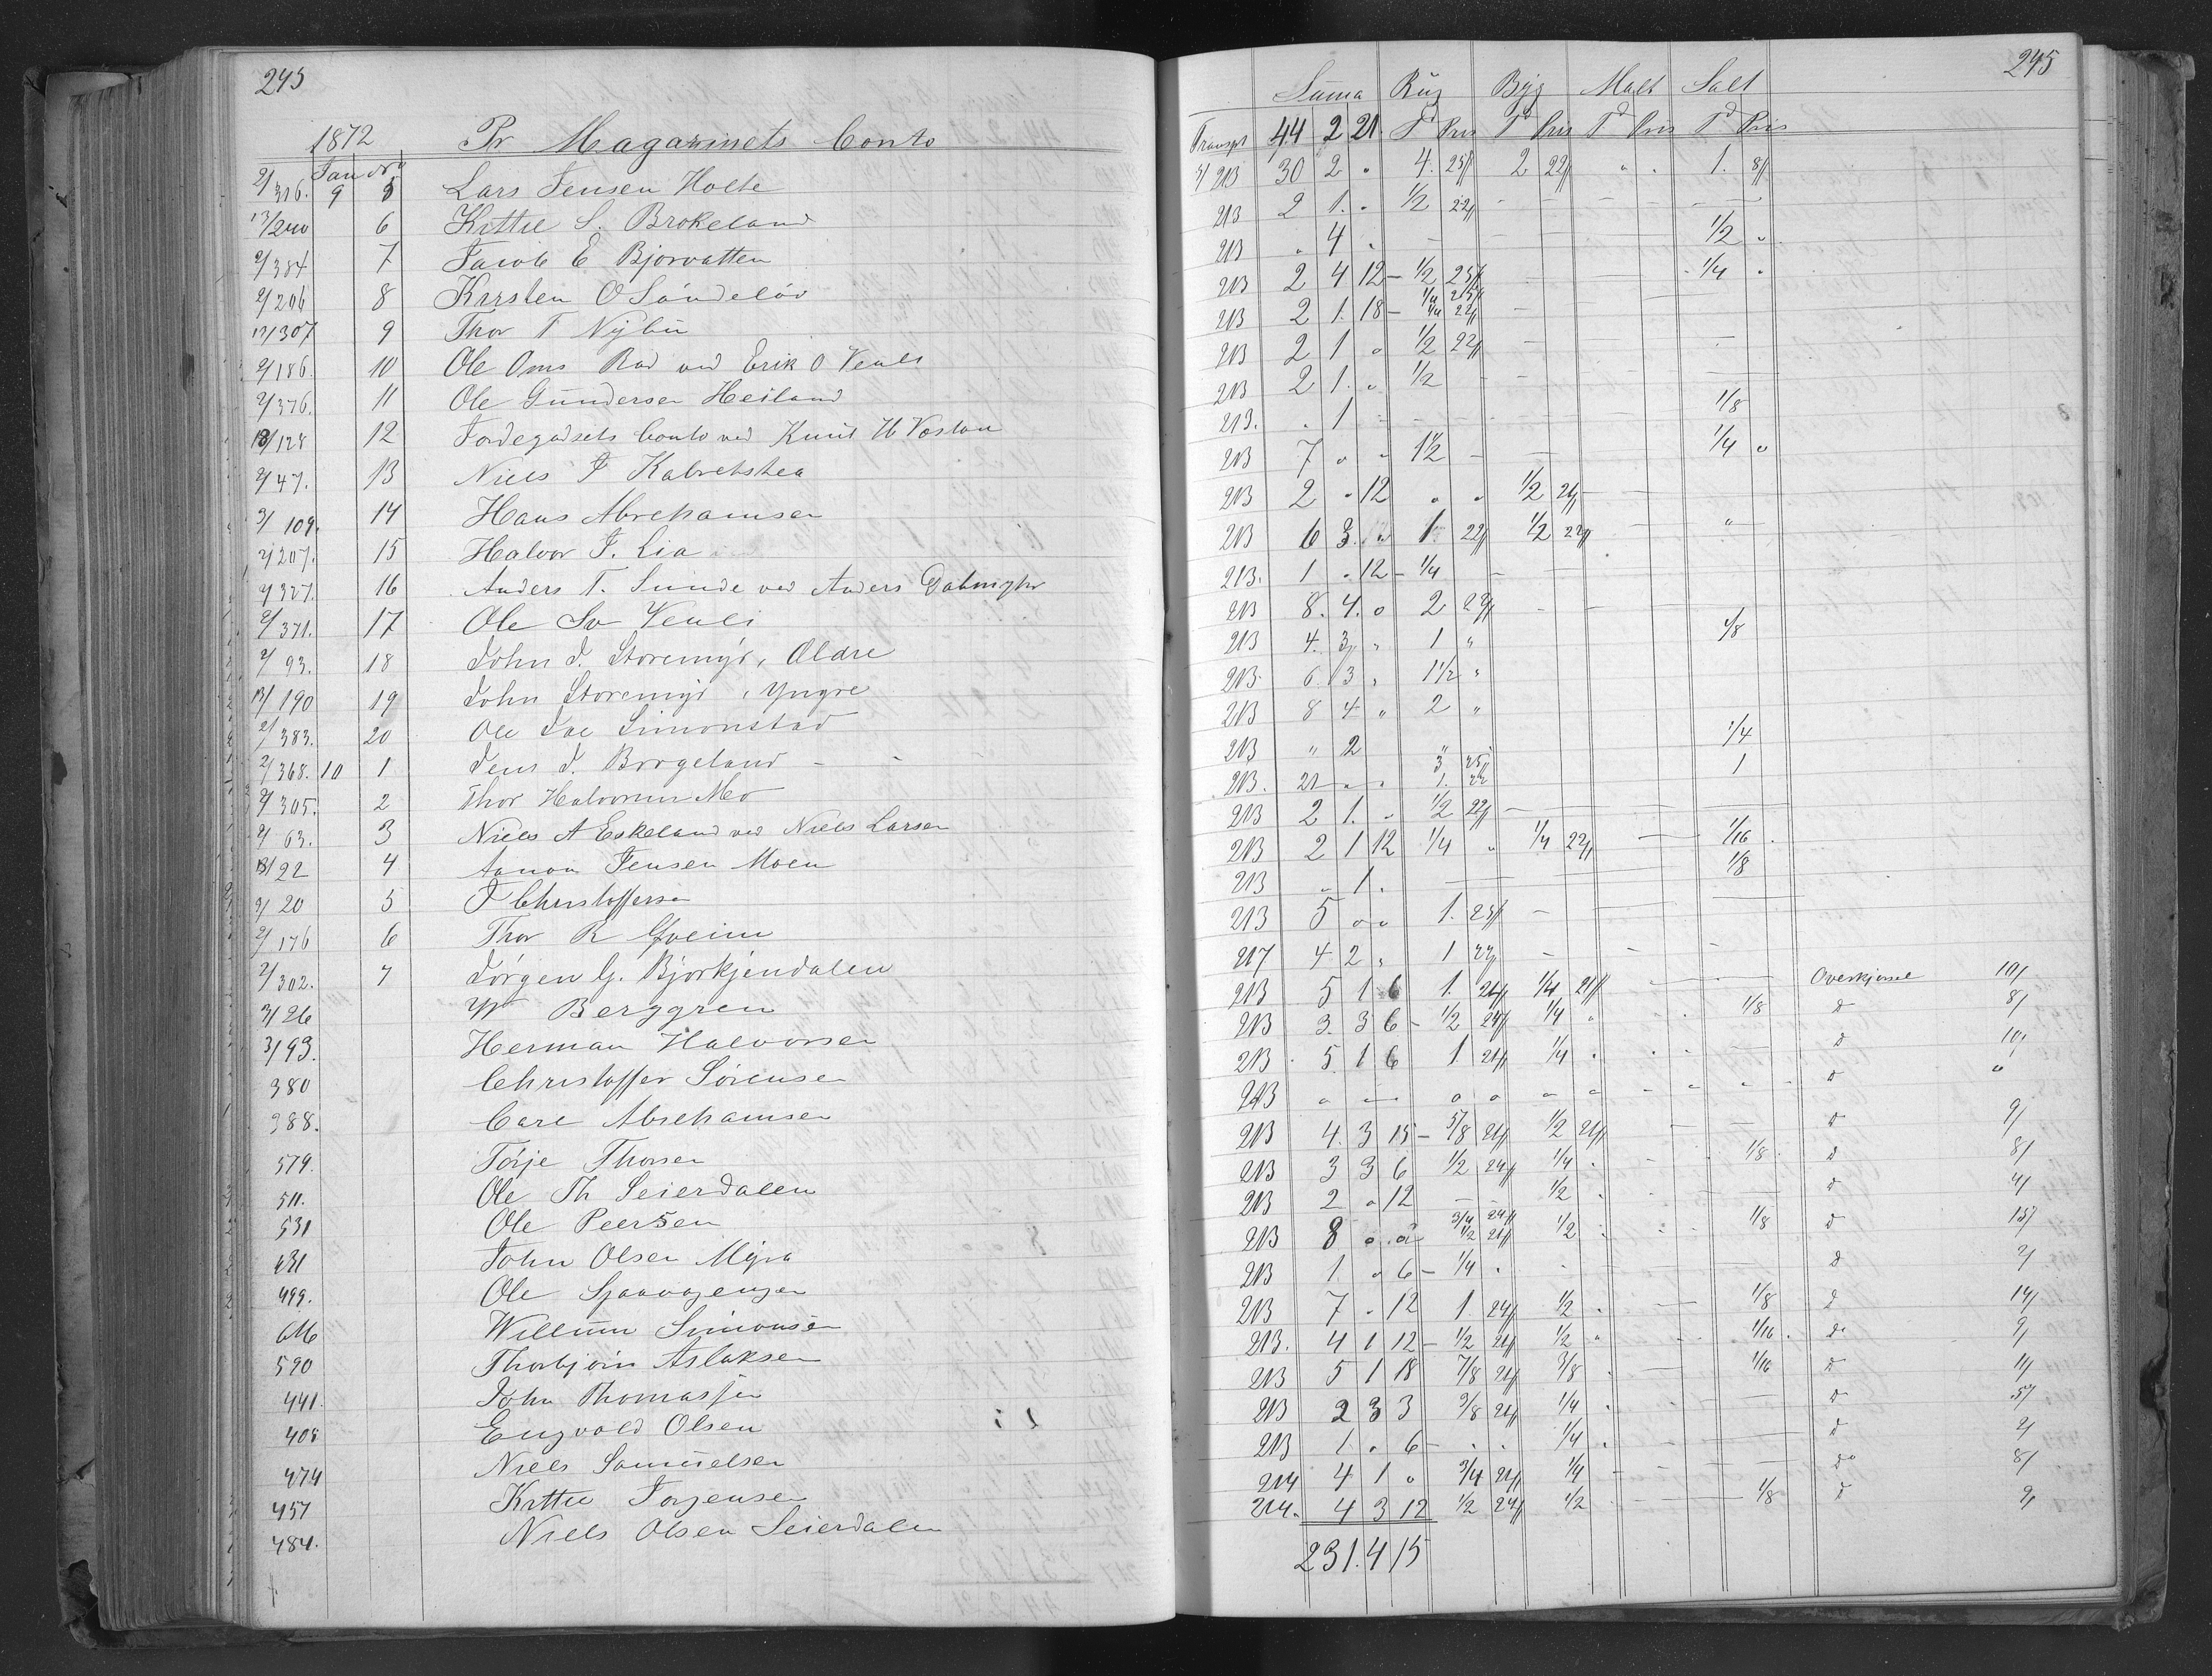 245
1872 Pr Magazinets Conto
Jan No
2/316. 9 5 Lars Jensen Holte
13/240 6 Kittil S. Brokeland
2/384 7 Jacob E Bjorvatten
2/206 8 Kirsten O Sóndeløv
12/307 9 Thor T Nybu
2/186. 10 Ole Oms Rad ved Erik O Veuli
2/376. 11 Ole Gundersen Heiland
13/128 12 Jordegodsets Conto ved Knud H
2/47. 13 Niels
3/109. 14 Hans Abrehamsen
2/207. 15 Halvor J. Lia
2/327. 16 Anders T. Sunde ved Anders
2/371. 17 Ole Sv Veuli
2/93. 18 John J. Storemyr, Ældre
13/190 19 John Storemyr, Yngre
2/383. 20 Ole Simonstad
2/368. 10 1 Jens J. Borgeland - -
2/305. 2 Thor Halvorsen Mo
2/63. 3 Niels A Eskeland ved Niels Larsen
13/22 4 Aanon Jensen Moen
2/20 5 J Christoffersen
2/176 6 Thor R
2/302. 7 Jórgen G. Bjorkjendalen
3/26 Berggren
3/93. Herman Halvorsen
380 Christoffer Sórensen
388. Carl Abrehamsen
579. Tórje Thorsen
511. Ole Th Seierdalen
531 Ole Peersen
631 John Olsen Myra
499. Ole
616 Willum Simonsen
590 Thorbjórn Aslaksen
441. John Thomassen
408 Engvald Olsen
474 Niels Samuelsen
457 Kittil Jorgensen
484. Niels Olsen Seierdalen
245
Suma Rug Byg Malt Salt
Transpt 44 2 21 Td Pris Td Pris Td Pris Td Pris
213 30 2 " 4 25 2 22 " " 1. 8
213 2 1. " 1/2 22
213 " 4 " 1/2 "
213 2 4 12 1/2 25 1/4 "
213 2 1. 18 1/4 25 1/4 22
213 2 1 " 1/2 22
213 2 1. " 1/2
213. . 1 1/8
213 7 " " 1 1/2 1/4 "
213 2 " 12 " " 1/2 21
213 6 3 " 1 22 1/2 22 "
213. 1 " 12 1/4
213 8. 4. " 2 22
213 4. 3 " 1 " 1/8
213 6. 3 " 1 1/2 "
213 8 4 " 2 "
213 " 2 1/4
213. 21 " " 3 25 1. 22 1
213 2 1. " 1/2 22
213 2 1 12 1/4 " 1/4 22 1/16
213 " 1. 1/8
213 5 " " 1. 25
217 4 2 " 1 22
213 5 1 6 1. 24 1/4 21 Overkjorsel 10/
213 3. 3 6 1/2 24 1/4 " 1/8 do 8/
213 5 1 6 1 24 1/4 " do 10/
213 " " " " " " " " " do "
213 4. 3 15 5/8 24 1/2 21 do 9/
213 3 3 6 1/2 24 1/4 1/8 do 8/
213 2 " 12 1/2 do 4/
213 8 " " 3/4 24 1/2 21 1/2 1/8 do 15/
213 1. " 6 1/4 . do 2/
213 7 " 12 1. 24 1/2 1/8 do 14/
213. 4 1 12 1/2 24 1/2 " 1/16 do 9/
213 5 1 18 7/8 24 3/8 1/16 do 11/
213 2 3 3 3/8 24 1/4 do 5/
213 1. " 6 1/4 do 2/
214 4 1 " 3/4 24 1/4 do 8/
214. 4 3 12 1/2 24 1/2 1/8 do 9/
231. 4 15